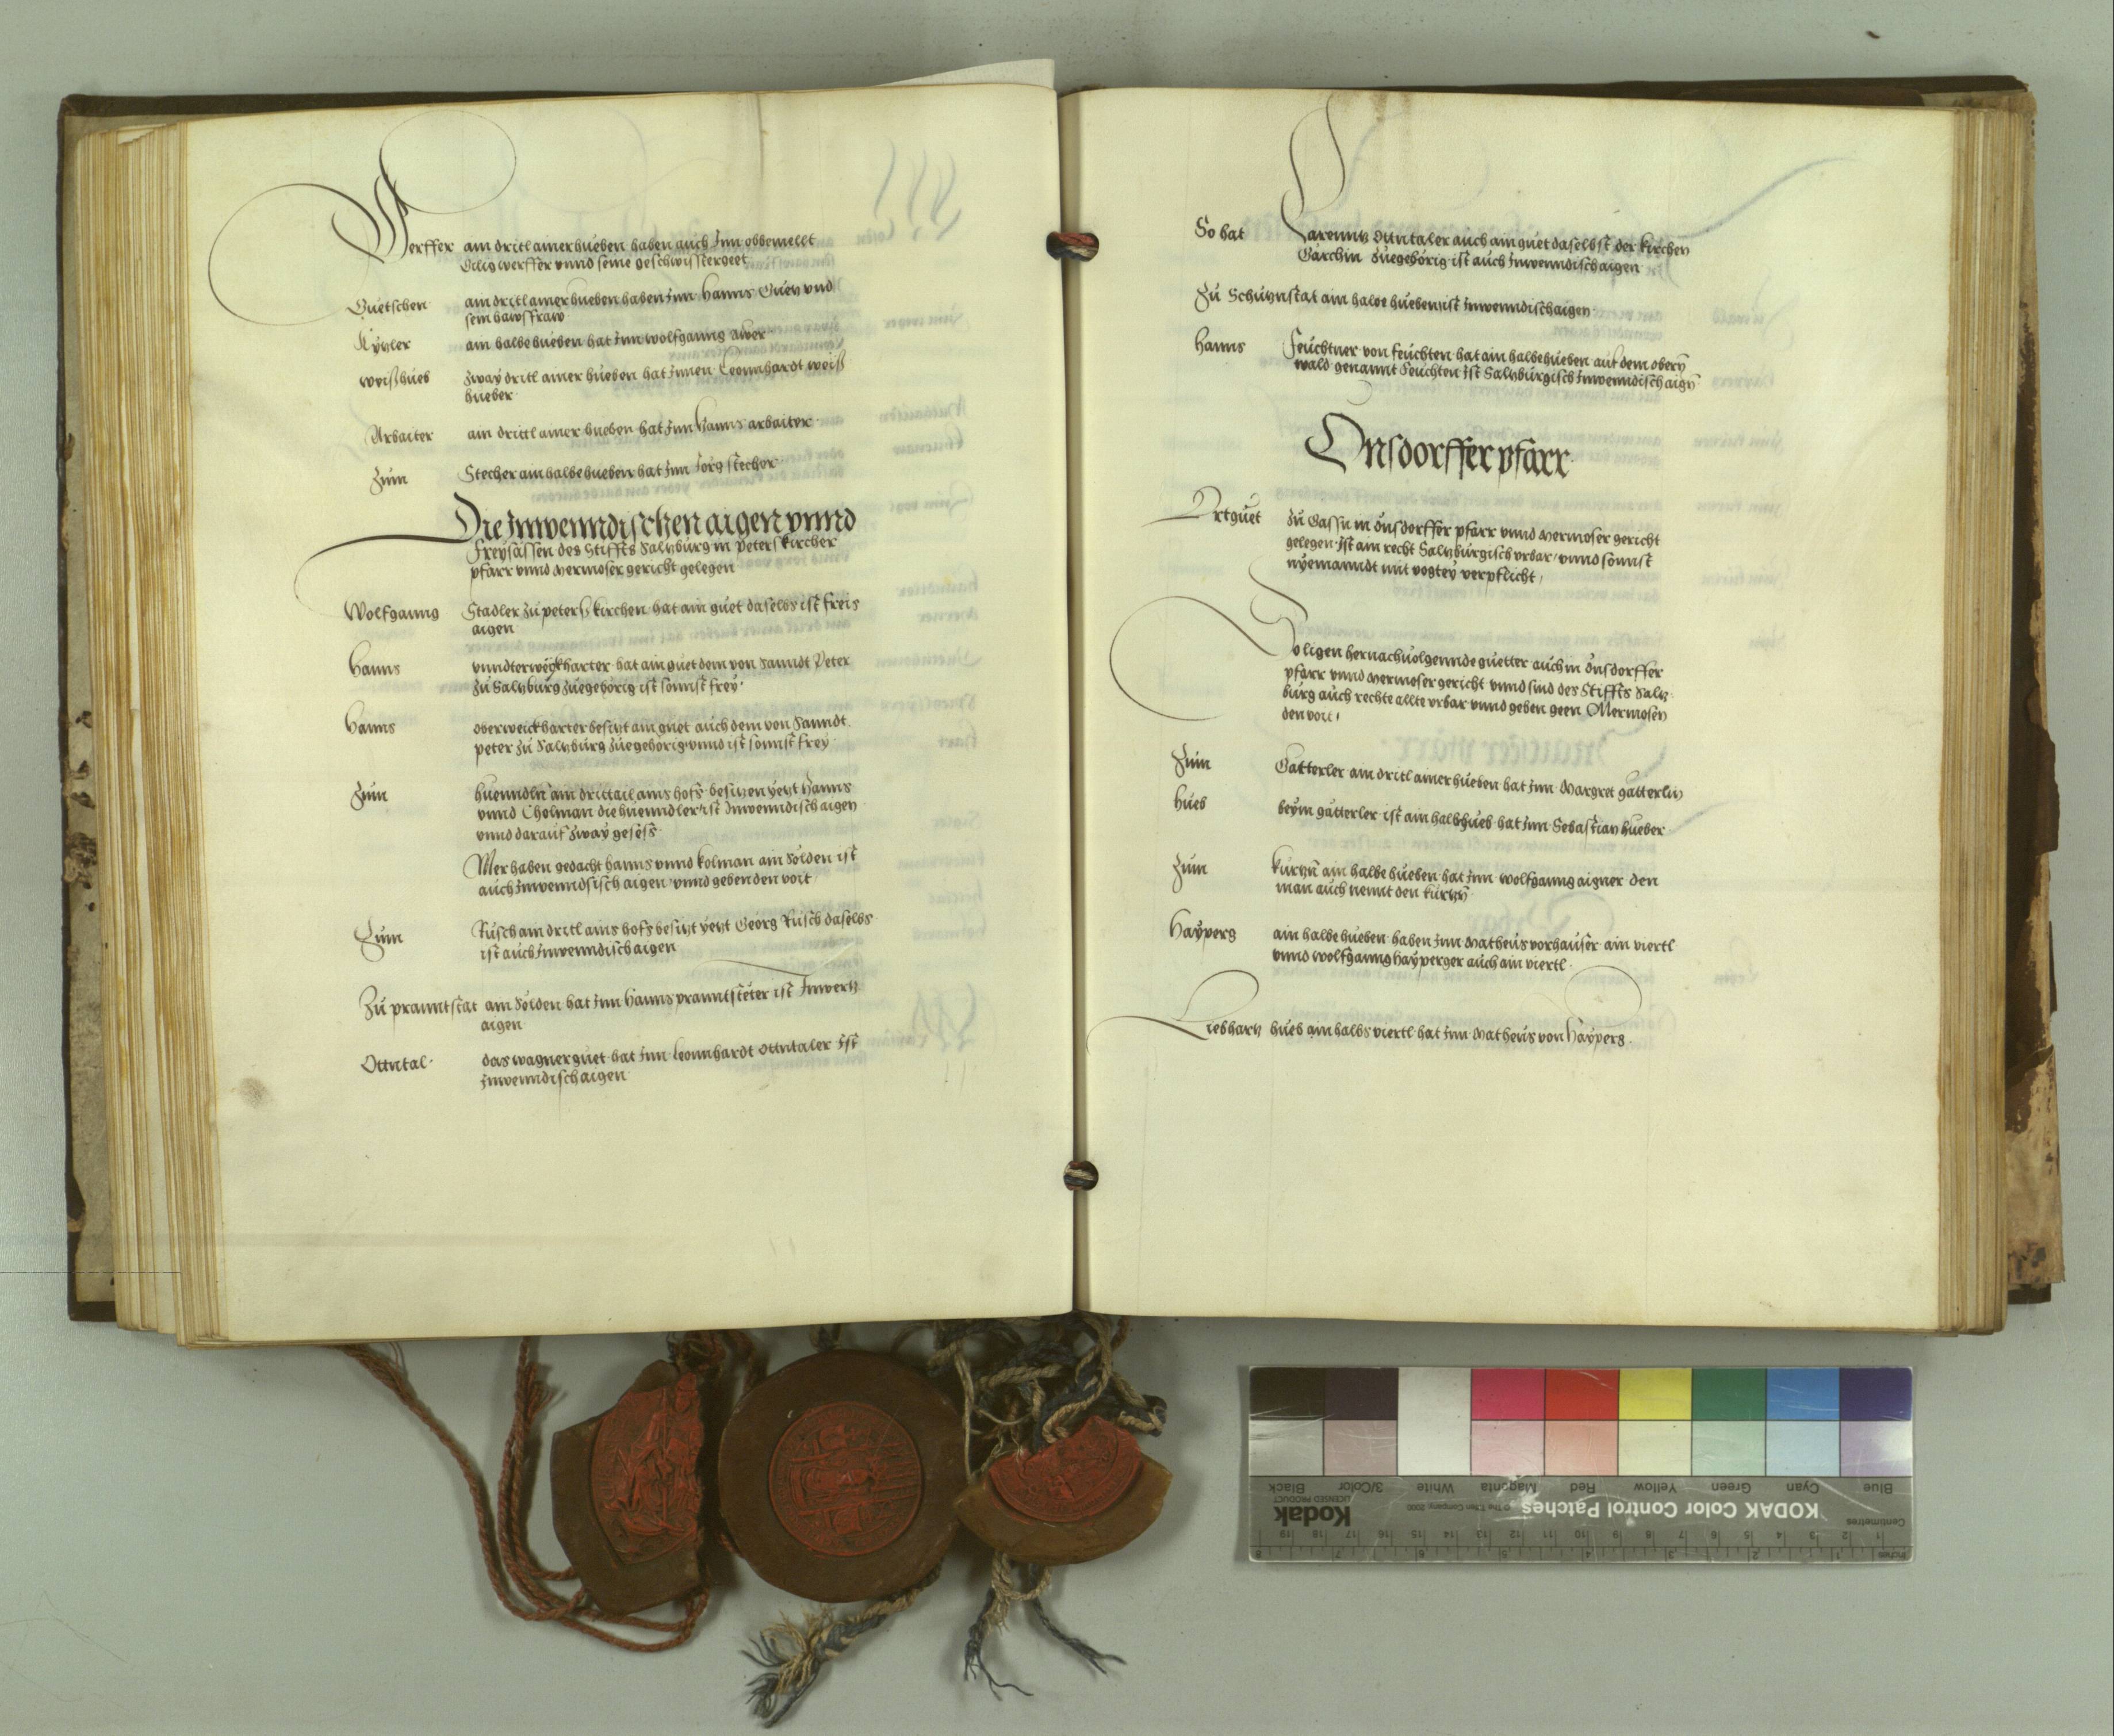 Werffer am dritl ainer hueben haben auch Inn obbemellt
Gilig werffer vnnd seine geschwisstergeet
Guetschen ain dritl ainer hueben haben Inn Hanns Guen vnd
sein hawsfraw
Kyrler ain halbe hueben hat Inn wolfganng Awer
weißhueb zway dritl ainer hueben hat Innen Leonnhardt weiß
hueber
Arbaiter ain drittl ainer hueben hat Inn Hanns arbaiter
Zum Stecher ain halbe hueben hat Inn Jorg stecher
Die Inwenndischen aigen vnnd
Freysassen des Stiffts Saltzburg in peterskircher
pfarr vnnd Mermoser gericht gelegen
Wolfganng Stadler zu peterskirchen hat ain guet daselbs ist freis
aigen
Hanns vnndterweykharter hat ain guet dem von Sanndt Peter
zu Saltzburg zuegehorig ist sonnst frey
Hanns oberweickharter besitzt ain guet auch dem von Sanndt
peter zu Saltzburg zuegehorig vnnd ist sonnst frey
Zum huenndln ain drittail ains hofs besitzen yetzt Hanns
vnnd Cholman die huenndler ist Inwenndisch aigen
vnnd darauf zway gesess
Mer haben gedacht hanns vnnd kolman ain Solden ist
auch Inwenndsisch aigen vnnd geben den voit
Zum Rusch ain dritl ains hofs besitzt yetzt Georg Rusch daselbs
ist auch Inwenndisch aigen
Zu pranntstat ain Solden hat Inn Hanns pranntsteter ist Inwertz
aigen
Ottntal das wagner guet hat Inn Leonnhardt Ottntaler Ist
Inwenndisch aigen
So hat Larenntz Ottntaler auch ain guet daselbst der kirchen
Garchin zuegehorig ist auch Inwenndisch aigen
Zu Schutznstat ain halbe hueben ist Inwenndisch aigen
Hanns Feuchtner von feuchten hat ain halbe hueben auf dem obern
wald genannt Feuchten Ist Saltzburgisch Inwenndisch aign
Onsdorffer pfarr
Ortguet zu Gassn in Onsdorffer pfarr vnnd Mermoser gericht
gelegen Ist ain recht Saltzburgisch vrbar vnnd sonnst
nyemanndt mit vogtey verpflicht
So ligen hernachuolgennde guetter auch in Onsdorffer
pfarr vnnd Mermoser gericht vnnd sind des Stiffts Saltz
burg auch rechte allte vrbar vnnd geben geen Mermosen
den voit
Zum Gatterler ain dritl ainer hueben hat Inn Margret gatterlin
hueb beym gatterler ist ain halb hueb hat Inn Sebastian hueber
Zum kurtzn ain halbe hueben hat Inn wolfganng aigner den
man auch nennt den kurtzn
Hayperg ain halbe hueben haben Inn Matheus vorhauser ain viertl
vnnd wolfganng hayperger auch ain viertl
Liebhartz hueb ain halbs viertl hat Inn Matheus von Hayperg
KODAK Color Control Patches
Kodak
LICENSED PRODUCT
© The Tiffen Company, 2000
Blue Cyan Green Yellow Red Magenta White 3/Color Black
Centimetres 1 2 3 4 5 6 7 8 9 10 11 12 13 14 15 16 17 18 19
Inches 1 2 3 4 5 6 7 8